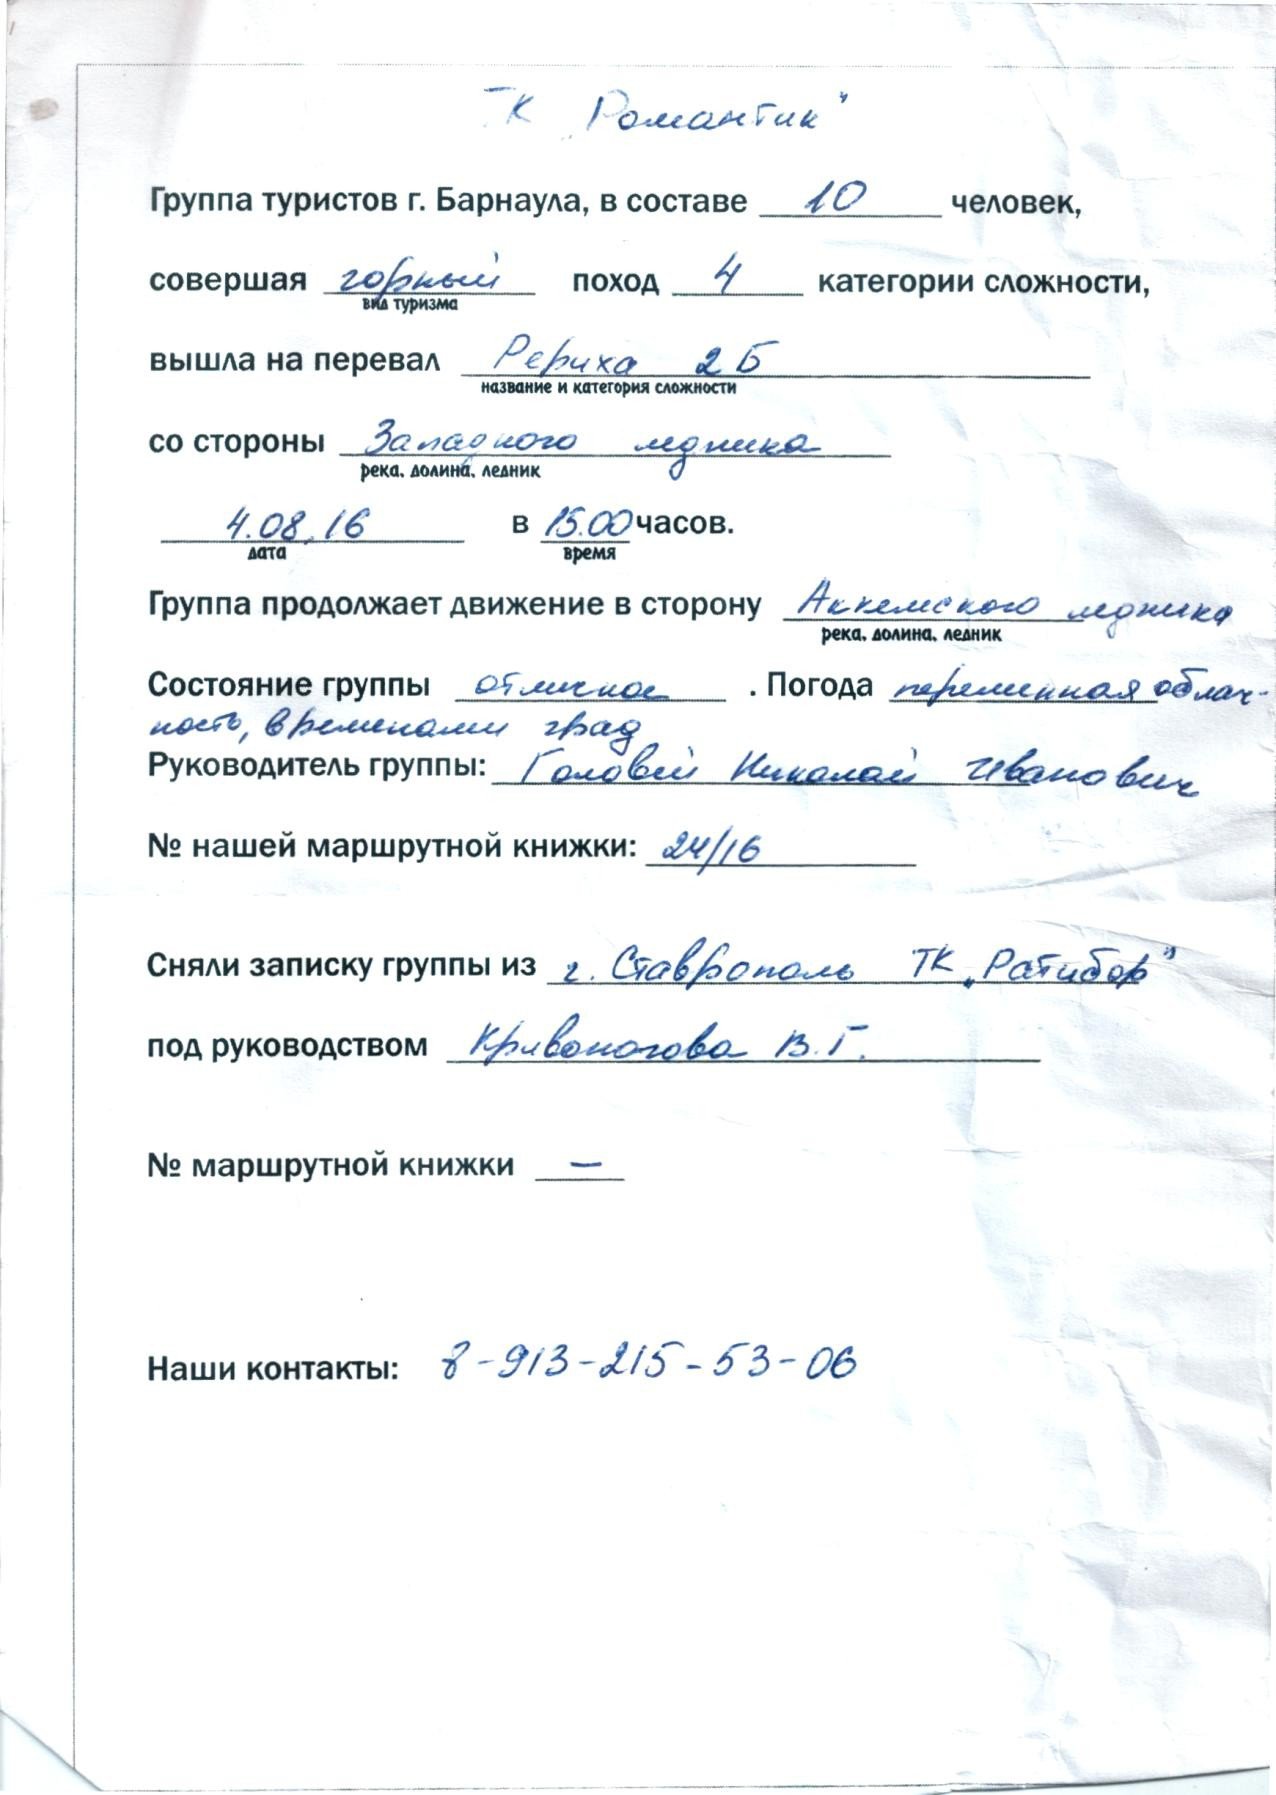 ТК „Романтик"
Группа туристов г. Барнаула, в составе 10 человек,
совершая горный поход 4 категории сложности,
вид туризма
вышла на перевал Рериха 2Б
название и категория сложности
со стороны Западного ледника
река, долина, ледник
4.08.16 в 15.00 часов.
дата время
Группа продолжает движение в сторону Аккемского ледника
река, долина, ледник
Состояние группы отличное . Погода переменная облач-
ность, временами град
Руководитель группы: Головей Николай Иванович
№ нашей маршрутной книжки: 24/16
Сняли записку группы из г. Ставрополь ТК „Ратибор"
под руководством Кривоногова В.Г.
№ маршрутной книжки –
Наши контакты: 8-913-215-53-06